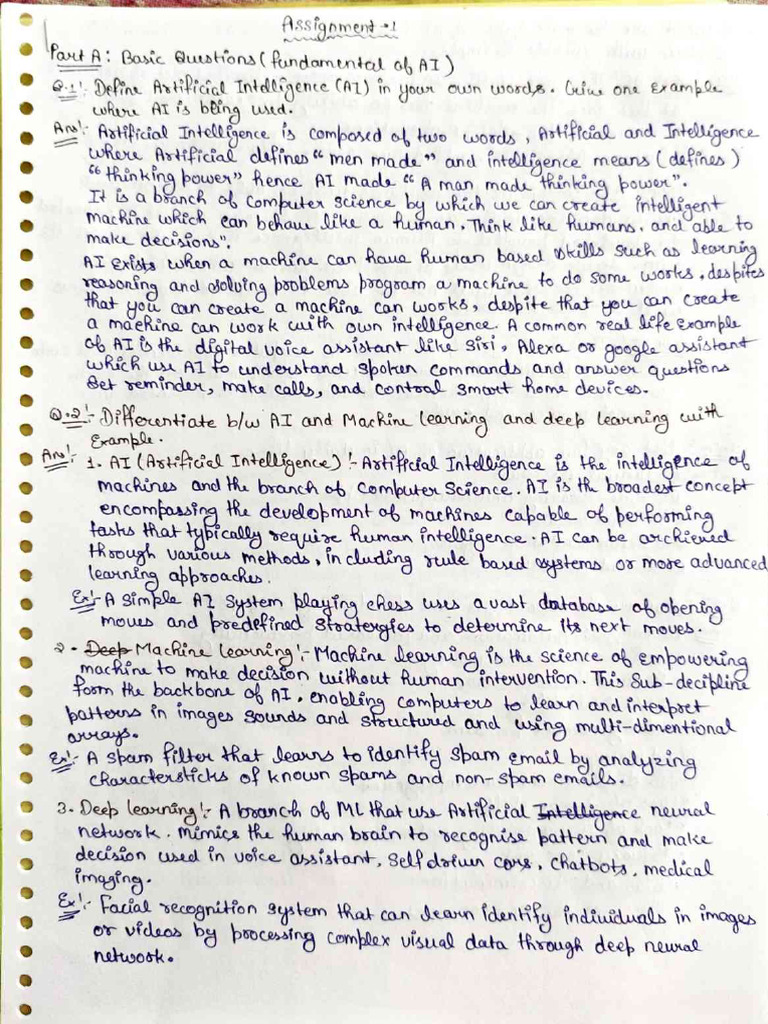 Assignment-1
Part A: Basic Questions (fundamental of AI)
Q.1:- Define Artificial Intelligence (AI) in your own words. Give one Example
where AI is being used.
Ans:- Artificial Intelligence is composed of two words, Artificial and Intelligence
where Artificial defines "men made" and intelligence means (defines)
"thinking power" hence AI made "A man made thinking power".
It is a branch of Computer science by which we can create intelligent
machine which can behave like a human. Think like humans. and able to
make decisions".
AI Exists when a machine can have human based skills such as learning
reasoning and solving problems program a machine to do some works, despite
that you can create a machine can works, despite that you can create
a machine can work with own intelligence. A common real life Example
of AI is the digital voice assistant like Siri, Alexa or google assistant
which use AI to understand spoken commands and answer questions
Set reminder, make calls, and control smart home devices.
Q.2:- Differentiate b/w AI and Machine learning and deep learning with
Example.
Ans:- 1. AI (Artificial Intelligence) :- Artificial Intelligence is the intelligence of
machines and the branch of Computer Science. AI is the broadest concept
encompassing the development of machines capable of performing
tasks that typically require human intelligence. AI can be archieved
through various methods, including rule based systems or more advanced
learning approaches.
Ex:- A Simple AI System playing chess uses a vast database of opening
moves and predefined stratergies to determine its next moves.
2. Deep Machine learning:- Machine learning is the science of empowering
machine to make decision without human intervention. This Sub-decipline
form the backbone of AI, enabling computers to learn and interpret
patterns in images sounds and structured and using multi-dimentional
arrays.
Ex:- A spam filter that learns to identify spam email by analyzing
charactersticks of known spams and non-spam emails.
3. Deep learning:- A branch of ML that use Artificial Intelligence neural
network. mimics the human brain to recognise pattern and make
decision used in voice assistant, Self driven cars, chatbots, medical
imaging.
Ex:- Facial recognition system that can learn identify individuals in images
or videos by processing complex visual data through deep neural
network.